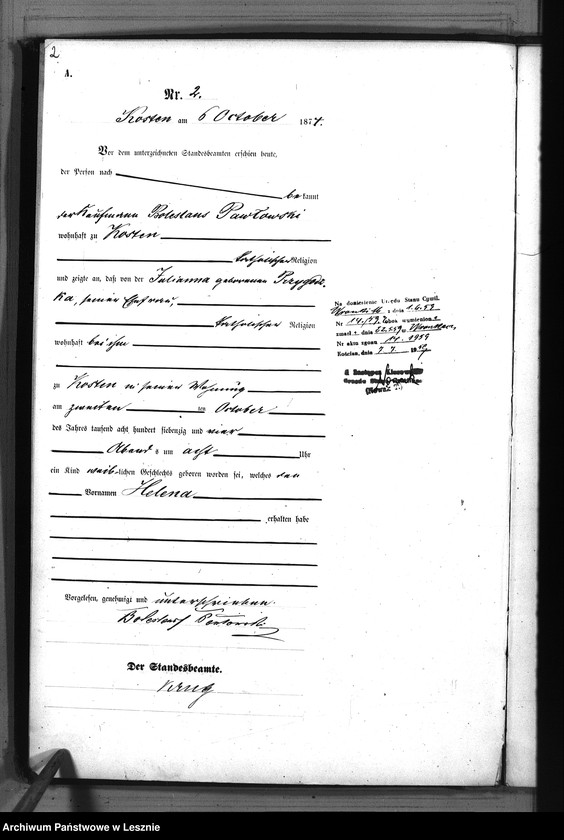 2
A.
Nr. 2.
Kosten am 6 October 1874.
Vor dem unterzeichneten Standesbeamten erschien heute,
der Person nach
bekannt
der Kaufmann Boleslaus Pawłowski
wohnhaft zu Kosten
katholischer Religion
und zeigte an, daß von der Julianna geborenen
ka, seiner Ehefrau,
katholischer Religion
wohnhaft bei ihm
zu Kosten in seiner Wohnung
am zweiten ten October
des Jahres tausend acht hundert siebenzig und vier
Abends um acht Uhr
ein Kind weiblichen Geschlechts geboren worden sei, welches den
Vornamen Helena
erhalten habe
Vorgelesen, genehmigt und unterschrieben.
Boleslaus
Der Standesbeamte.
Krug
Na doniesienie Urzędu Stanu Cywil.
z dnia 1.6.59
Nr wymieniona
zmarła dnia
Nr aktu zgonu 1959
Kościan, dnia 7.7.
Archiwum Państwowe w Lesznie